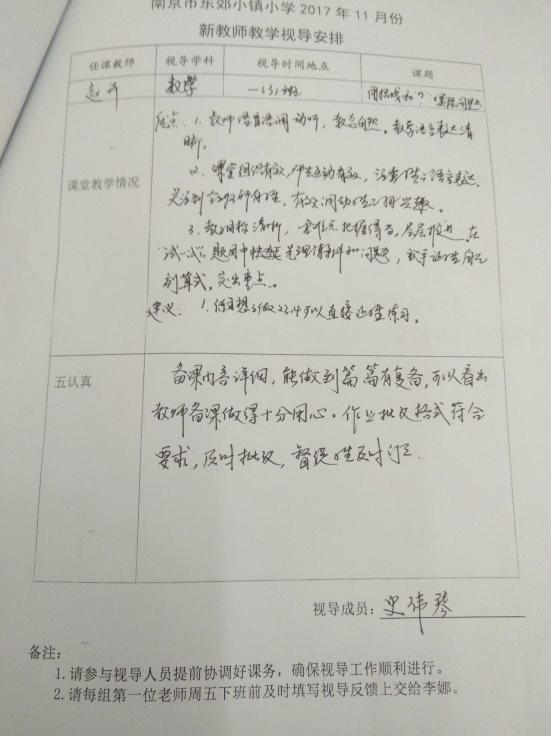 南京市东郊小镇小学 2017 年 11 月份
新教师教学视导安排
任课教师 视导学科 视导时间地点 课题
数学 一(3)班 用括线和“？”实际问题
课堂教学情况
优点：1. 教师语言语调动听，教态自然，教学语言表达清
晰。
2. 课堂组织有效，师生互动有效，注重学生语言表达。
关注到 有效调动学生学习兴趣。
3. 教学目标清晰，重难点把握得当，层层推进。在
“试一试”题目中 条件和问题，再让学生
列算式，突出重点。
建议：1. 想想做做 可以直接让学生练习。
五认真
备课内容详细，能做到篇篇有复备，可以看出
教师备课做得十分用心。作业批改格式符合
要求，及时批改，督促学生及时订正.
视导成员：史伟琴
备注：
1.请参与视导人员提前协调好课务，确保视导工作顺利进行。
2.请每组第一位老师周五下班前及时填写视导反馈上交给李娜。